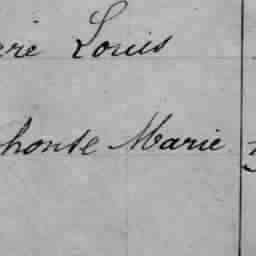 ere Louis
phonse Marie